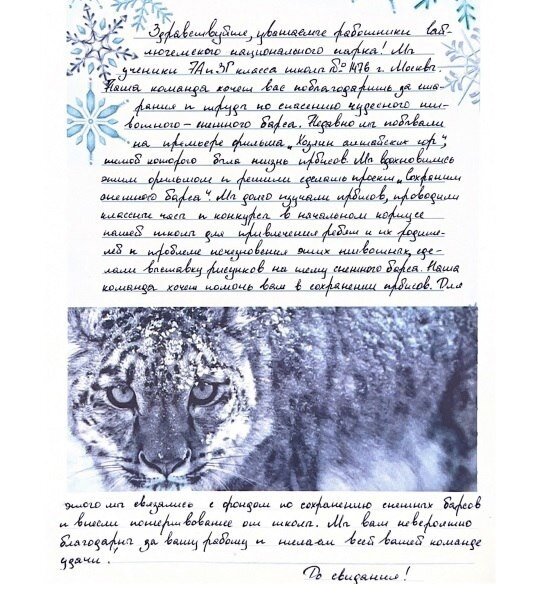 Здравствуйте, уважаемые работники Сай-
люгемского национального парка! Мы
ученики 7А и 3Г класса школы № 1476 г. Москвы.
Наша команда хочет вас поблагодарить за ста-
рания и труды по спасению чудесного жи-
вотного - снежного барса. Недавно мы побывали
на премьере фильма „Хозяин алтайских гор",
темой которого была жизнь ирбисов. Мы вдохновились
этим фильмом и решили сделать проект „Сохраним
снежного барса". Мы долго изучали ирбисов, проводили
классные часы и конкурсы в начальном корпусе
нашей школы для привлечения ребят и их родите-
лей к проблеме исчезновения этих животных, сде-
лали выставку рисунков на тему снежного барса. Наша
команда хочет помочь вам в сохранении ирбисов. Для
этого мы связались с фондом по сохранению снежных барсов
и внесли пожертвование от школы. Мы вам невероятно
благодарны за вашу работу и желаем всей вашей команде
удачи!
До свидания!